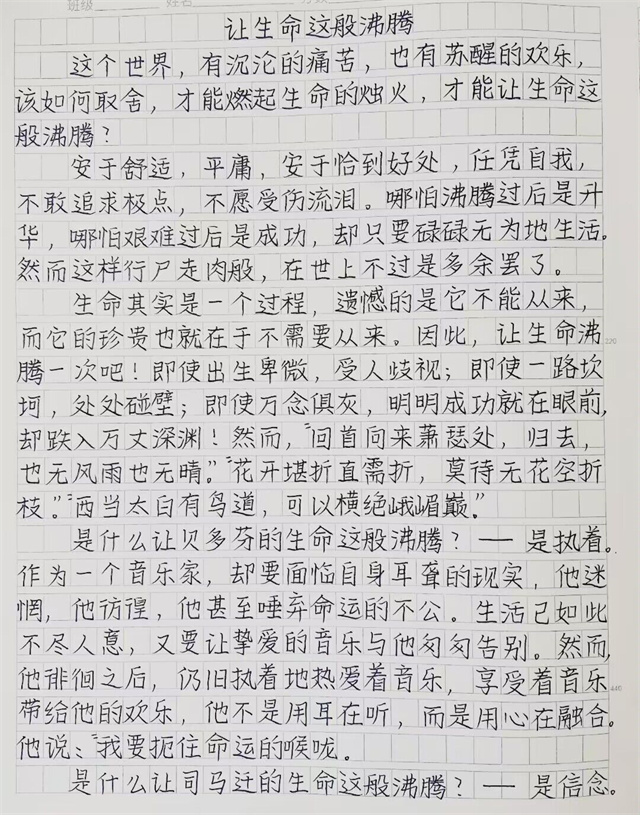 班级 姓名
让生命这般沸腾
这个世界，有沉沦的痛苦，也有苏醒的欢乐，
该如何取舍，才能燃起生命的烛火，才能让生命这
般沸腾？
安于舒适，平庸，安于恰到好处，任凭自我，
不敢追求极点，不愿受伤流泪。哪怕沸腾过后是升
华，哪怕艰难过后是成功，却只要碌碌无为地生活。
然而这样行尸走肉般，在世上不过是多余罢了。
生命其实是一个过程，遗憾的是它不能从来，
而它的珍贵也就在于不需要从来。因此，让生命沸
220
腾一次吧！即使出生卑微，受人歧视；即使一路坎
坷，处处碰壁；即使万念俱灰，明明成功就在眼前，
却跌入万丈深渊！然而，“回首向来萧瑟处，归去，
也无风雨也无晴。”“花开堪折直需折，莫待无花空折
枝。”“西当太白有鸟道，可以横绝峨嵋巅。”
是什么让贝多芬的生命这般沸腾？——是执着。
作为一个音乐家，却要面临自身耳聋的现实，他迷
惘，他彷徨，他甚至唾弃命运的不公。生活已如此
不尽人意，又要让挚爱的音乐与他匆匆告别。然而，
他徘徊之后，仍旧执着地热爱着音乐，享受着音乐
440
带给他的欢乐，他不是用耳在听，而是用心在融合。
他说：“我要扼住命运的喉咙。
是什么让司马迁的生命这般沸腾？——是信念。